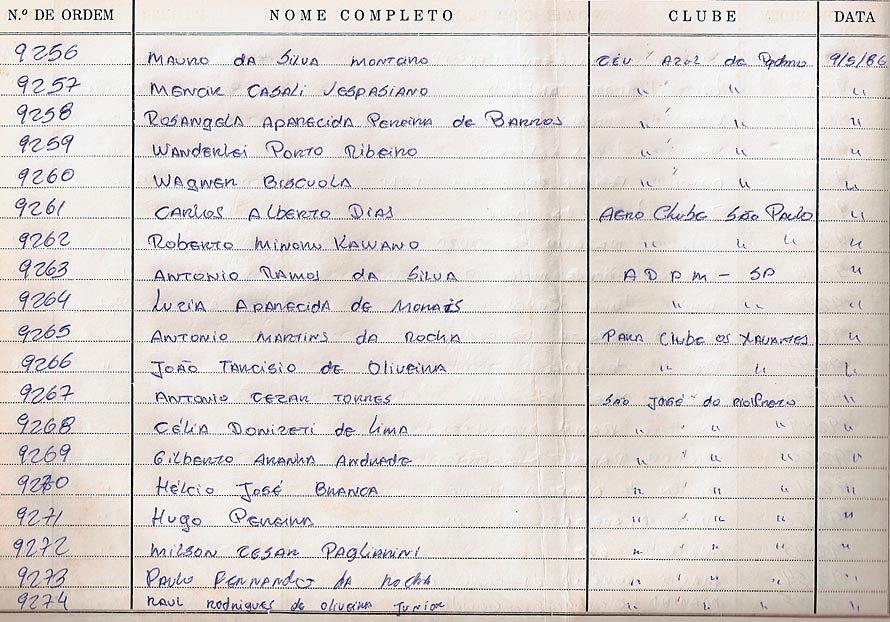 N.º DE ORDEM NOME COMPLETO CLUBE DATA
9256 Mauro da Silva Monteiro Céu Azul de Pedrno 9/5/86
9257 Mencir Casali Vespasiano " " "
9258 Rosangela Aparecida Pereira de Barros " " "
9259 Wanderlei Porto Ribeiro " " "
9260 Wagner Biscuola " " "
9261 Carlos Alberto Dias Aero Clube São Paulo "
9262 Roberto Minoru Kawano " " " "
9263 Antonio Ramos da Silva ADPM - SP "
9264 Luzia Aparecida de Morais " " "
9265 Antonio Martins da Rocha Para Clube os Xavantes "
9266 João Tarcisio de Oliveira " " "
9267 Antonio Cezar Torres São José do Rio Preto "
9268 Célia Donizeti de Lima " " " "
9269 Gilberto Aranha Andrade " " " "
9270 Hélcio José Branca " " " "
9271 Hugo Pereira " " " "
9272 Milson Cesar Paglianini " " " "
9273 Paulo Fernandes da Rocha " " " "
9274 Raul Rodrigues de Oliveira Junior " " " "